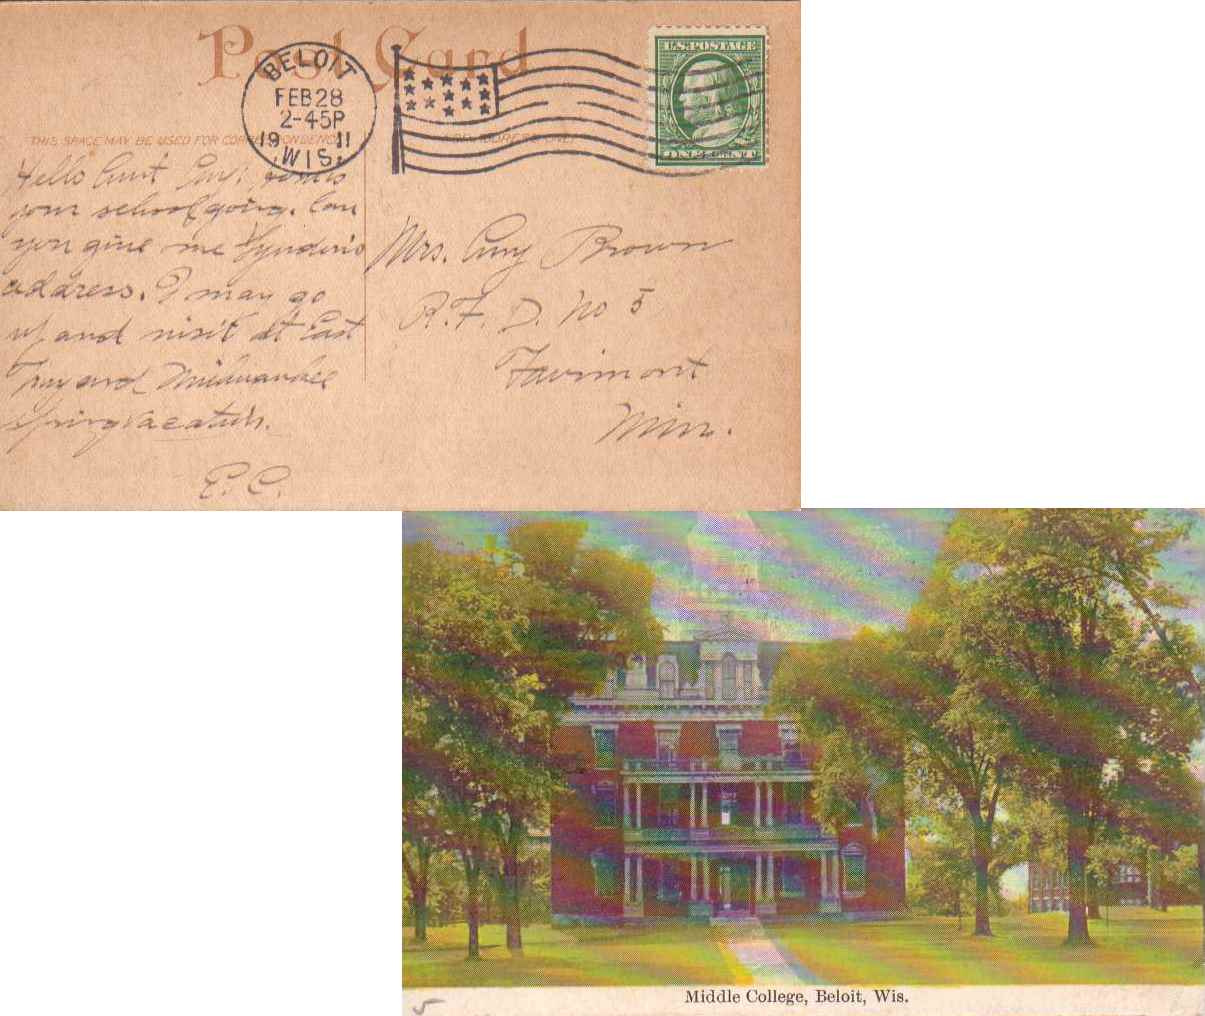 Post Card
BELOIT
FEB 28
2-45P
19 11
WIS.
U.S. POSTAGE
ONE CENT
THIS SPACE MAY BE USED FOR CORRESPONDENCE
Hello Aunt
your school going. Can
you give me
address. I may go
up and visit at East
Troy and Milwaukee
Spring vacation.
E.C.
Mrs. Amy Brown
R.F.D. No 5
Fairmont
Minn.
Middle College, Beloit, Wis.
5